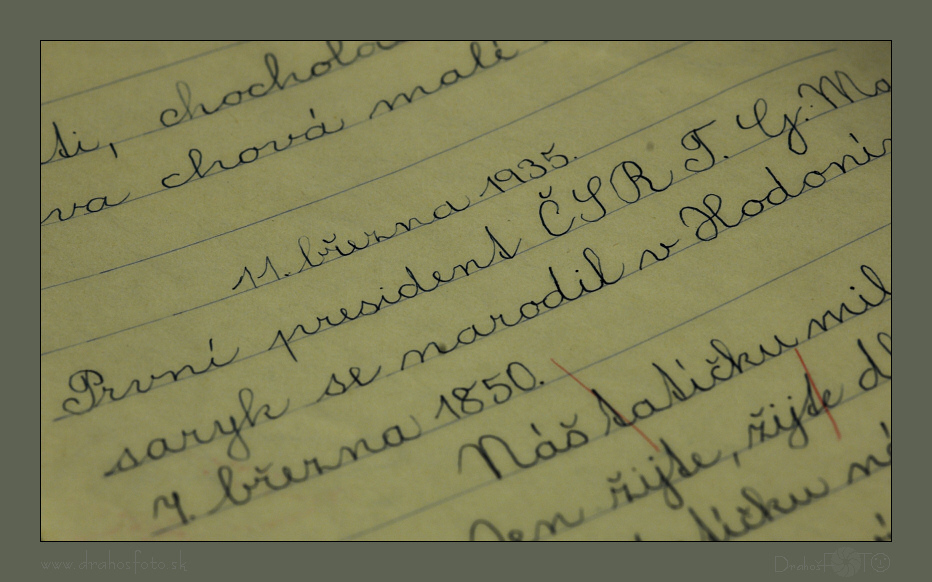 ti, chochola
va chová malé
11. března 1935.
První president ČSR T. G. Ma
saryk se narodil v Hodoní
7. března 1850.
Náš tatíčku mil
Jen žijte, žijte d
tíčku ná
www.drahosfoto.sk
DrahosFOTO